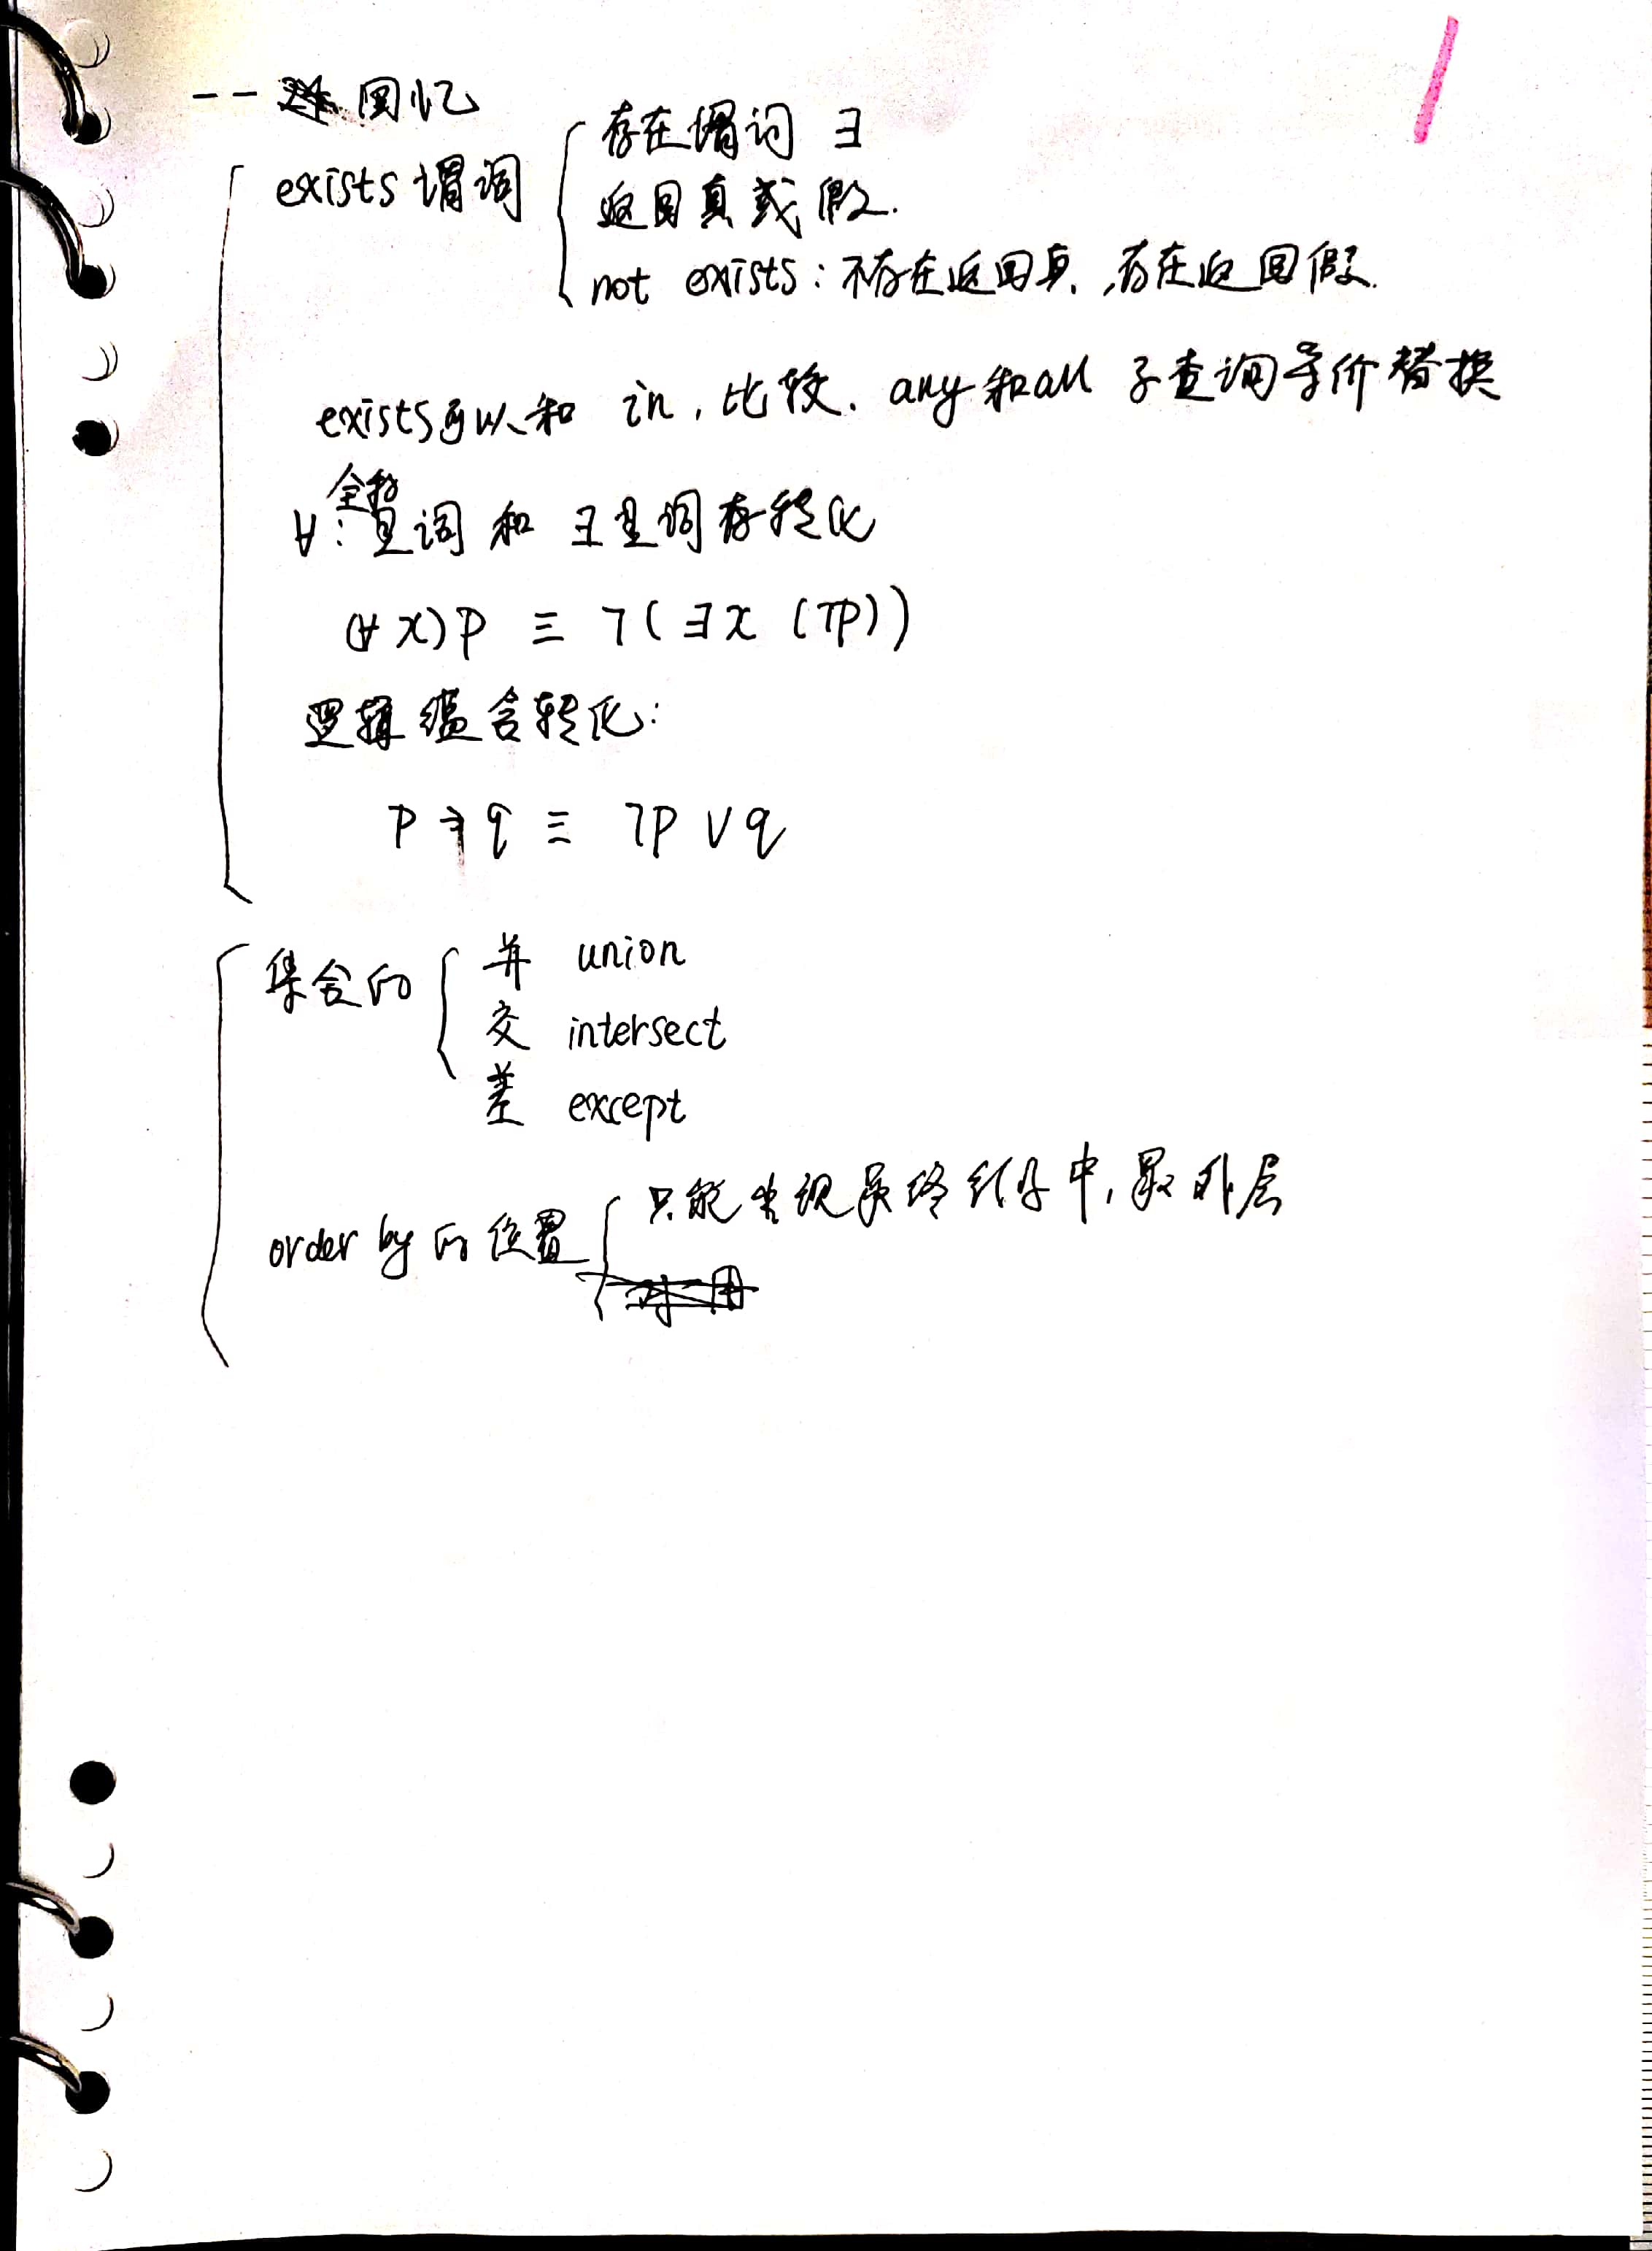 -- 回忆
exists 谓词
存在谓词 ∃
返回真或假.
not exists: 不存在返回真, 存在返回假.
exists可以和 in, 比较. any和all 子查询等价替换
全称
∀: 量词 和 ∃量词存转化
(∀x)p ≡ ㄱ(∃x (ㄱp))
逻辑蕴含转化:
P → q ≡ ㄱp ∨ q
集合的
并 union
交 intersect
差 except
order by 的位置
只能出现最终结果中, 最外层